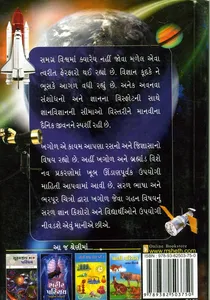 સમગ્ર વિશ્વમાં ક્યારેય નહીં જોવા મળેલ એવા
ત્વરીત ફેરફારો થઈ રહ્યાં છે. વિજ્ઞાન કૂદકે ને
ભૂસકે આગળ વધી રહ્યું છે. અનેક અવનવા
સંશોધનો અને જ્ઞાનના વિસ્ફોટની સાથે
જ્ઞાનવિજ્ઞાનની સીમાઓ વિસ્તરીને માનવીના
દૈનિક જીવનને સ્પર્શી રહી છે.
ખગોળ એ કાયમ આપણા રસનો અને જિજ્ઞાસાનો
વિષય રહ્યો છે. અહીં ખગોળ અને બ્રહ્માંડ વિશે
નવ પ્રકરણોમાં ખૂબ ઊંડાણપૂર્વક ઉપયોગી
માહિતી આપવામાં આવી છે. સરળ ભાષા અને
ભરપૂર ચિત્રો દ્વારા ખગોળ જેવા ગહન વિષયનું
સરળ જ્ઞાન કિશોરો અને વિદ્યાર્થીઓને ઉપયોગી
નીવડશે એવું માનીએ છીએ.
આ જ શ્રેણીમાં
www.rrsheth.com
ISBN 978-93-82503-75-0
9 789382 503750